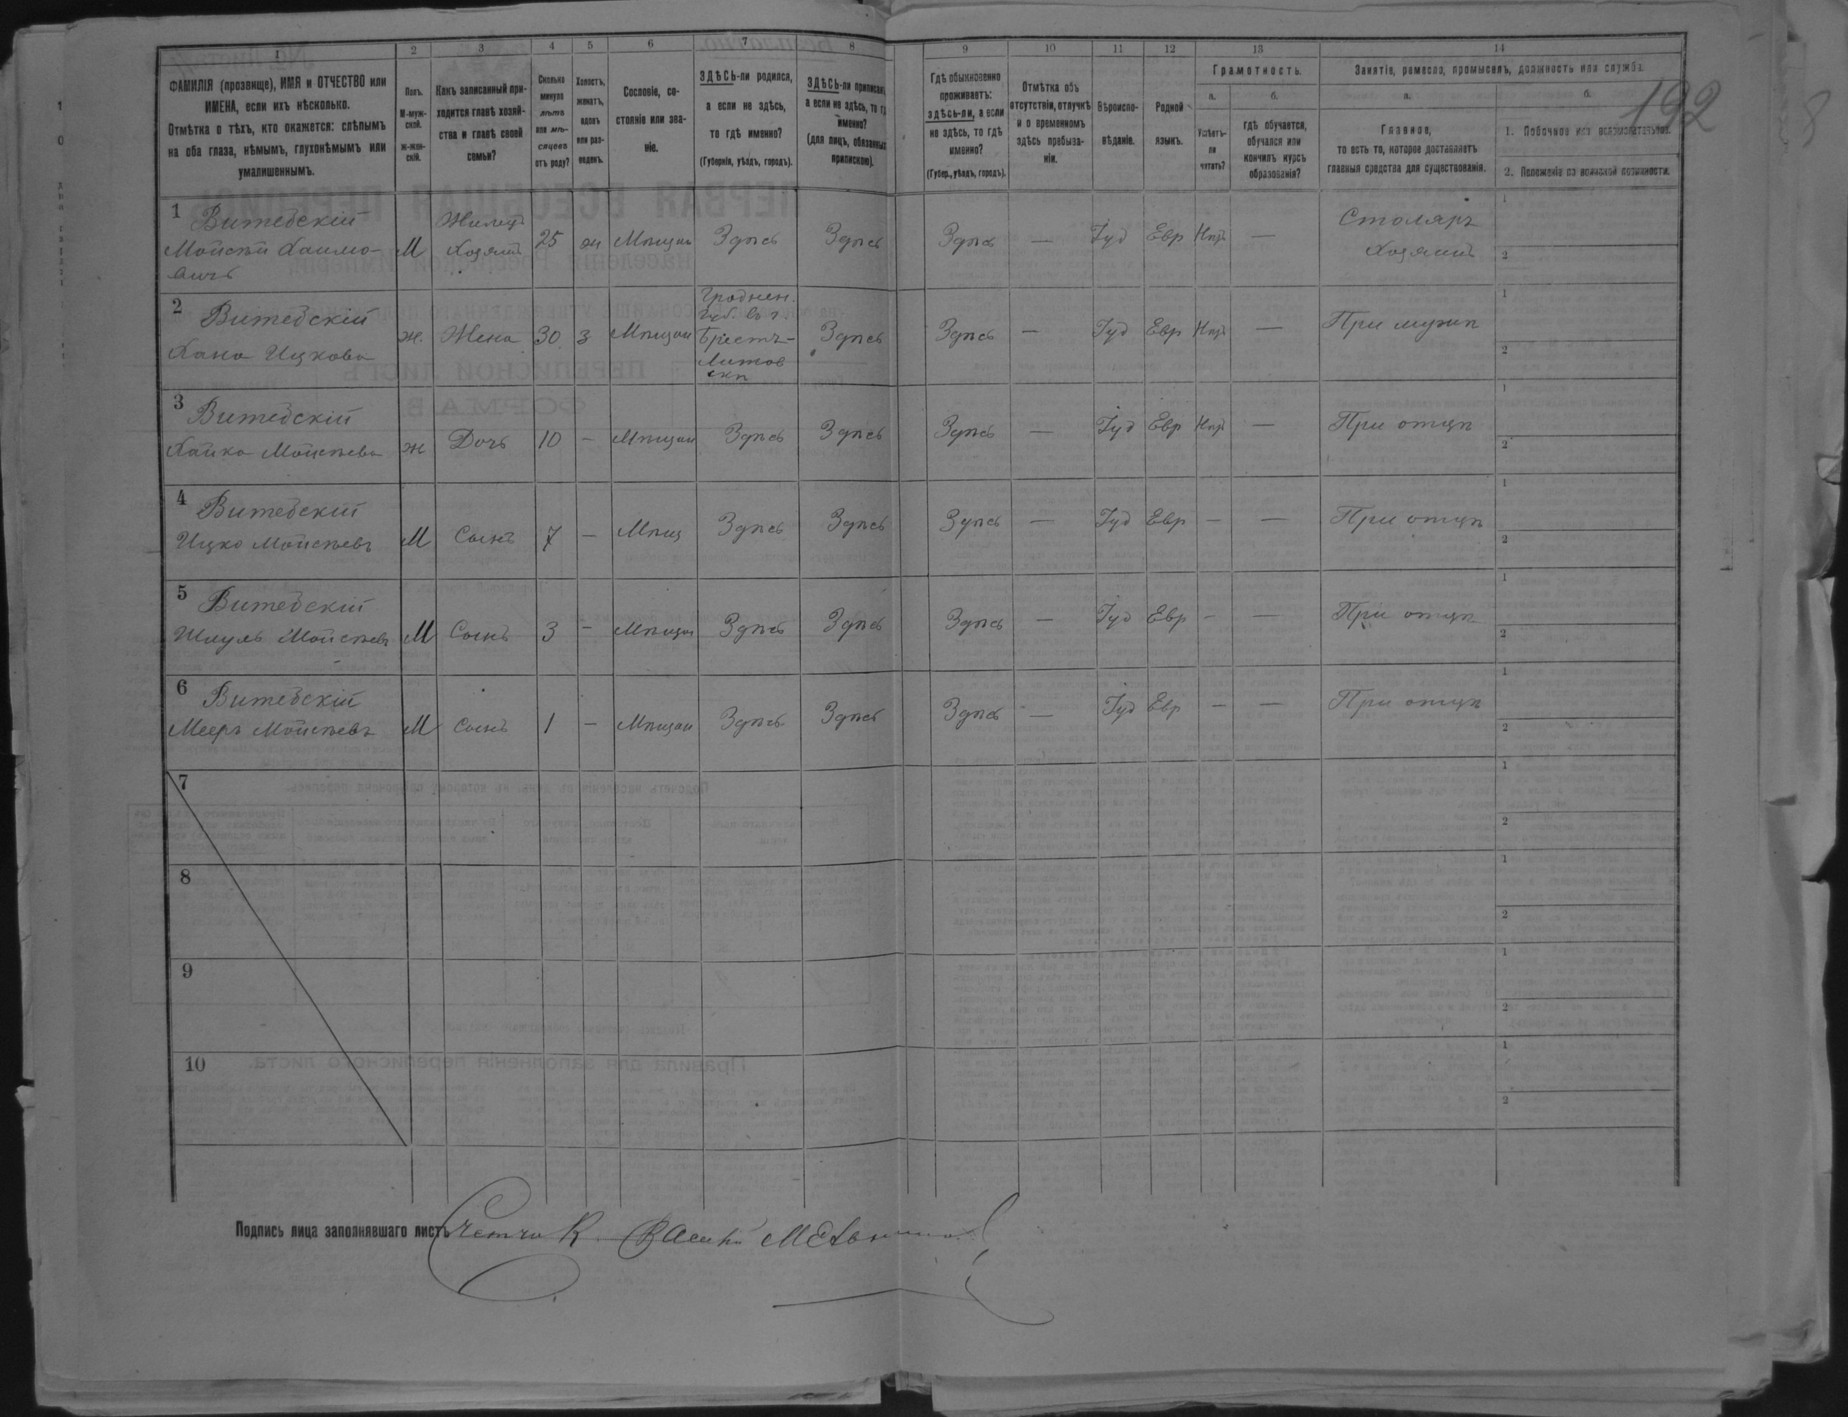 1 2 3 4 5 6 7 8 9 10 11 12 13 14
ФАМИЛІЯ (прозвище), ИМЯ и ОТЧЕСТВО или
ИМЕНА, если ихъ нѣсколько.
Отмѣтка о тѣхъ, кто окажется: слѣпымъ
на оба глаза, нѣмымъ, глухонѣмымъ или
умалишеннымъ.
Полъ.
М-муж-
ской.
Ж-жен-
скій.
Какъ записанный при-
ходится главѣ хозяй-
ства и главѣ своей
семьи?
Сколько
минуло
лѣтъ
или мѣ-
сяцевъ
отъ роду?
Холостъ,
женатъ,
вдовъ
или раз-
веденъ.
Сословіе, со-
стояніе или зва-
ніе.
ЗДѢСЬ-ли родился,
а если не здѣсь,
то гдѣ именно?
(Губернія, уѣздъ, городъ).
ЗДѢСЬ-ли приписанъ,
а если не здѣсь, то гдѣ
именно?
(для лицъ, обязанныхъ
припискою).
Гдѣ обыкновенно
проживаетъ:
здѣсь-ли, а если
не здѣсь, то гдѣ
именно?
(Губер., уѣздъ, городъ).
Отмѣтка объ
отсутствіи, отлучкѣ
и о временномъ
здѣсь пребыва-
ніи.
Вѣроиспо-
вѣданіе.
Родной
языкъ.
Грамотность.
а.
Умѣетъ-
ли
читать?
б.
гдѣ обучается,
обучался или
кончилъ курсъ
образованія?
Занятіе, ремесло, промыселъ, должность или служба.
а.
Главное,
то есть то, которое доставляетъ
главныя средства для существованія.
б.
1. Побочное или вспомогательное.
2. Положеніе по воинской повинности.
192
1 Витебскій
Мойсей Хаимо-
вичъ
М
Жилец
Хозяинъ
25 ж Мпщан Здпсь Здпсь Здпсь — Іуд Евр Нпт —
Столяръ
Хозяинъ
1
2
2 Витебскій
Хана Ицкова
ж. Жена 30 з Мпщан
Гроднен.
губ. въ г.
Брестъ-
Литов
скп
Здпсь Здпсь — Іуд Евр Нпт — При мужп
1
2
3 Витебскій
Хайка Мойсеева
ж Дочь 10 — Мпщан Здпсь Здпсь Здпсь — Іуд Евр Нпт — При отцп
1
2
4 Витебскій
Ицко Мойсеевъ
М Сынъ 7 — Мпщ Здпсь Здпсь Здпсь — Іуд Евр — — При отцп
1
2
5 Витебскій
Шмуль Мойсеевъ
М Сынъ 3 — Мпщан Здпсь Здпсь Здпсь — Іуд Евр — — При отцп
1
2
6 Витебскій
Мееръ Мойсеевъ
М Сынъ 1 — Мпщан Здпсь Здпсь Здпсь — Іуд Евр — — При отцп
1
2
7
1
2
8
1
2
9
1
2
10
1
2
Подпись лица заполнявшаго листъ Счетчик